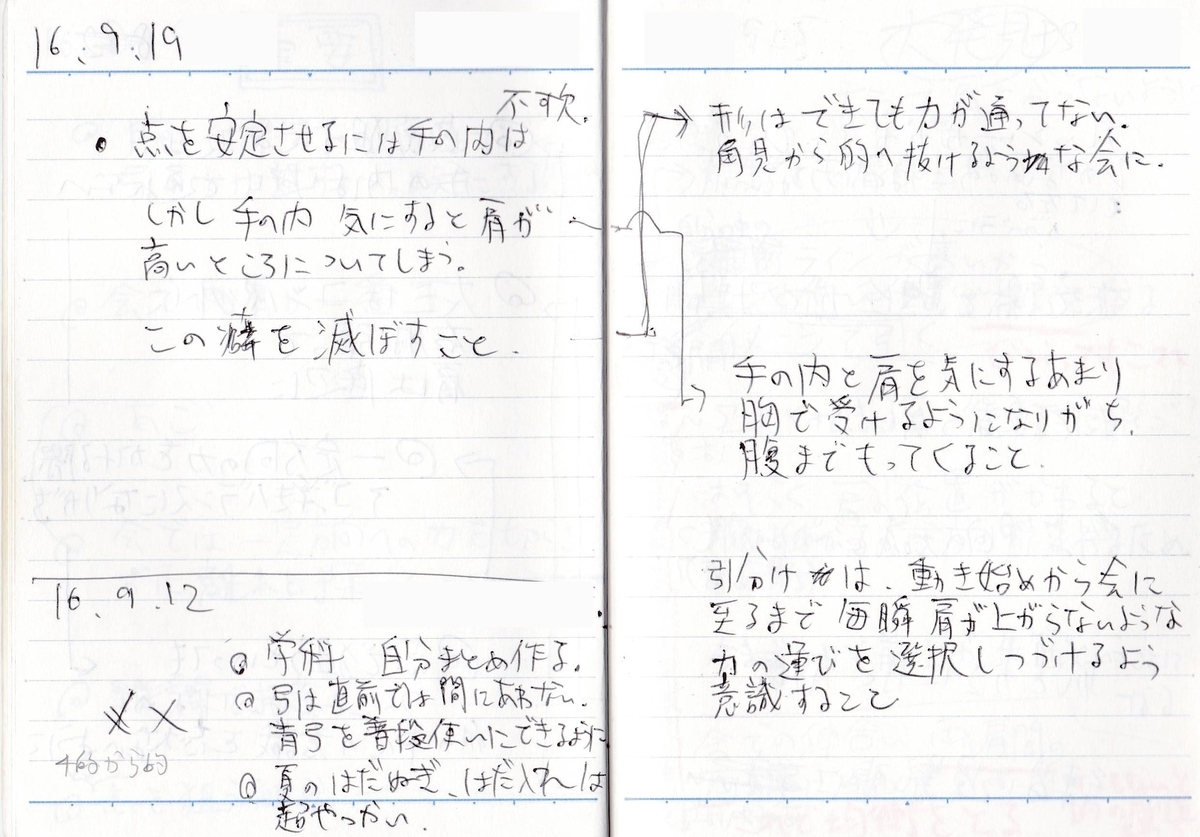 16.9.19
不可欠.
・点を安定させるには手の内は
しかし手の内 気にすると肩が
高いところについてしまう。
この癖を滅ぼすこと.
16.9.12
学科 自分まとめ作る。
弓は直前では間にあわない.
青弓を普段使いにできるように
夏のはだぬぎ、はだ入れは
超やっかい.
形はできても力が通ってない.
角見から的へ抜けるような会に.
手の内と肩を気にするあまり
胸で受けるようになりがち.
腹までもってくること.
引分けは、動き始めから会に
至るまで毎瞬肩が上がらないような
力の運びを選択しつづけるよう
意識すること